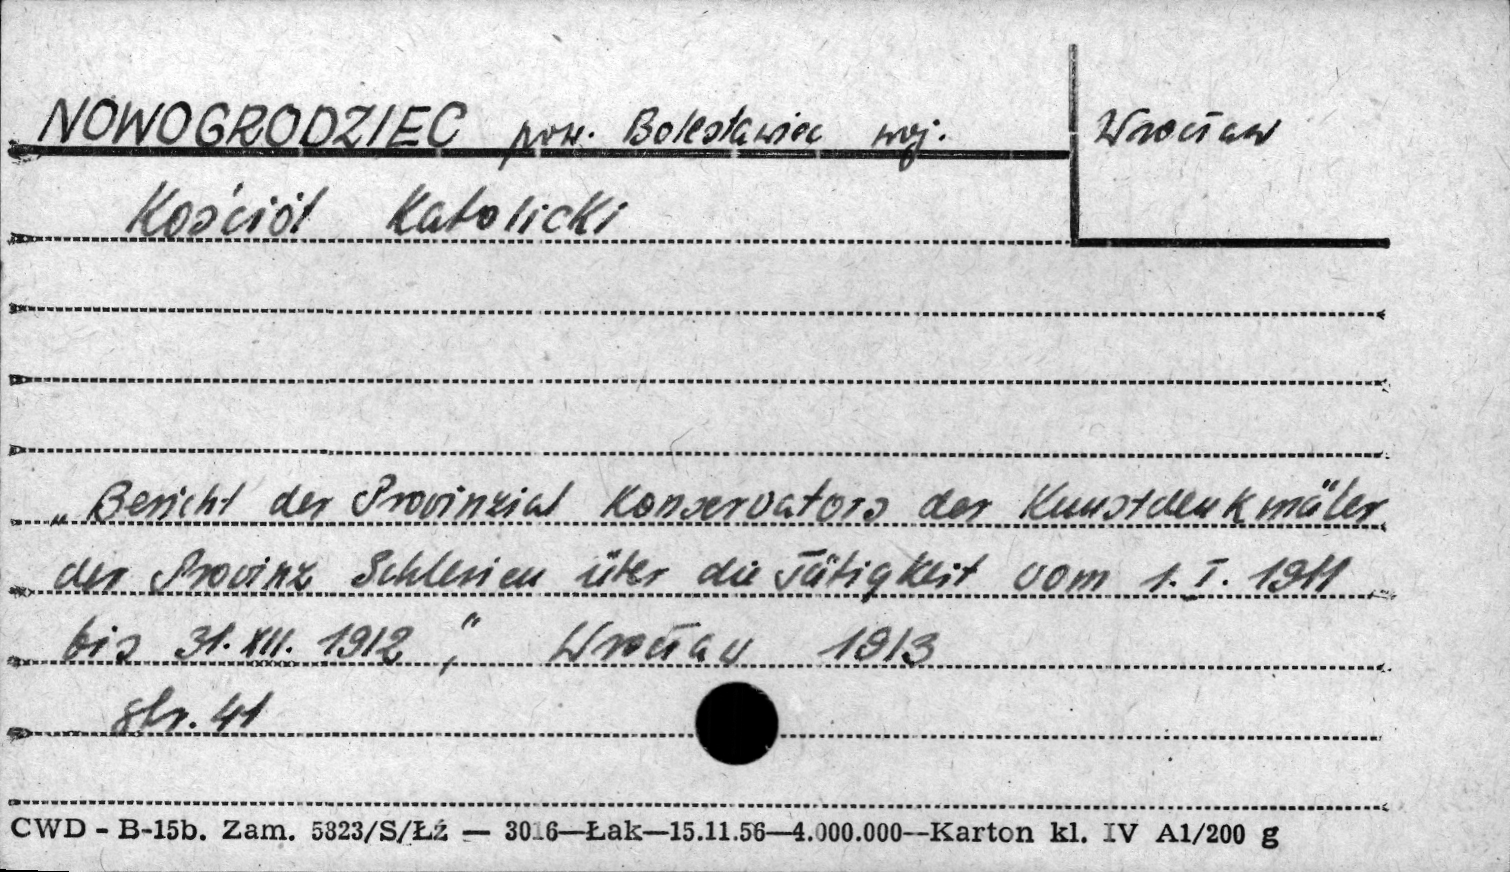 NOWOGRODZIEC pow. Bolesławiec woj. Wrocław
Kościół Katolicki
„Bericht der Provinzial Konservators der Kunstdenkmäler
der Provinz Schlesien über die Tätigkeit vom 1. I. 1911
bis 31. XII. 1912," Wrocław 1913
str. 41
CWD - B-15b. Zam. 5823/S/Łż — 3016—Łak—15.11.56—4.000.000--Karton kl. IV A1/200 g